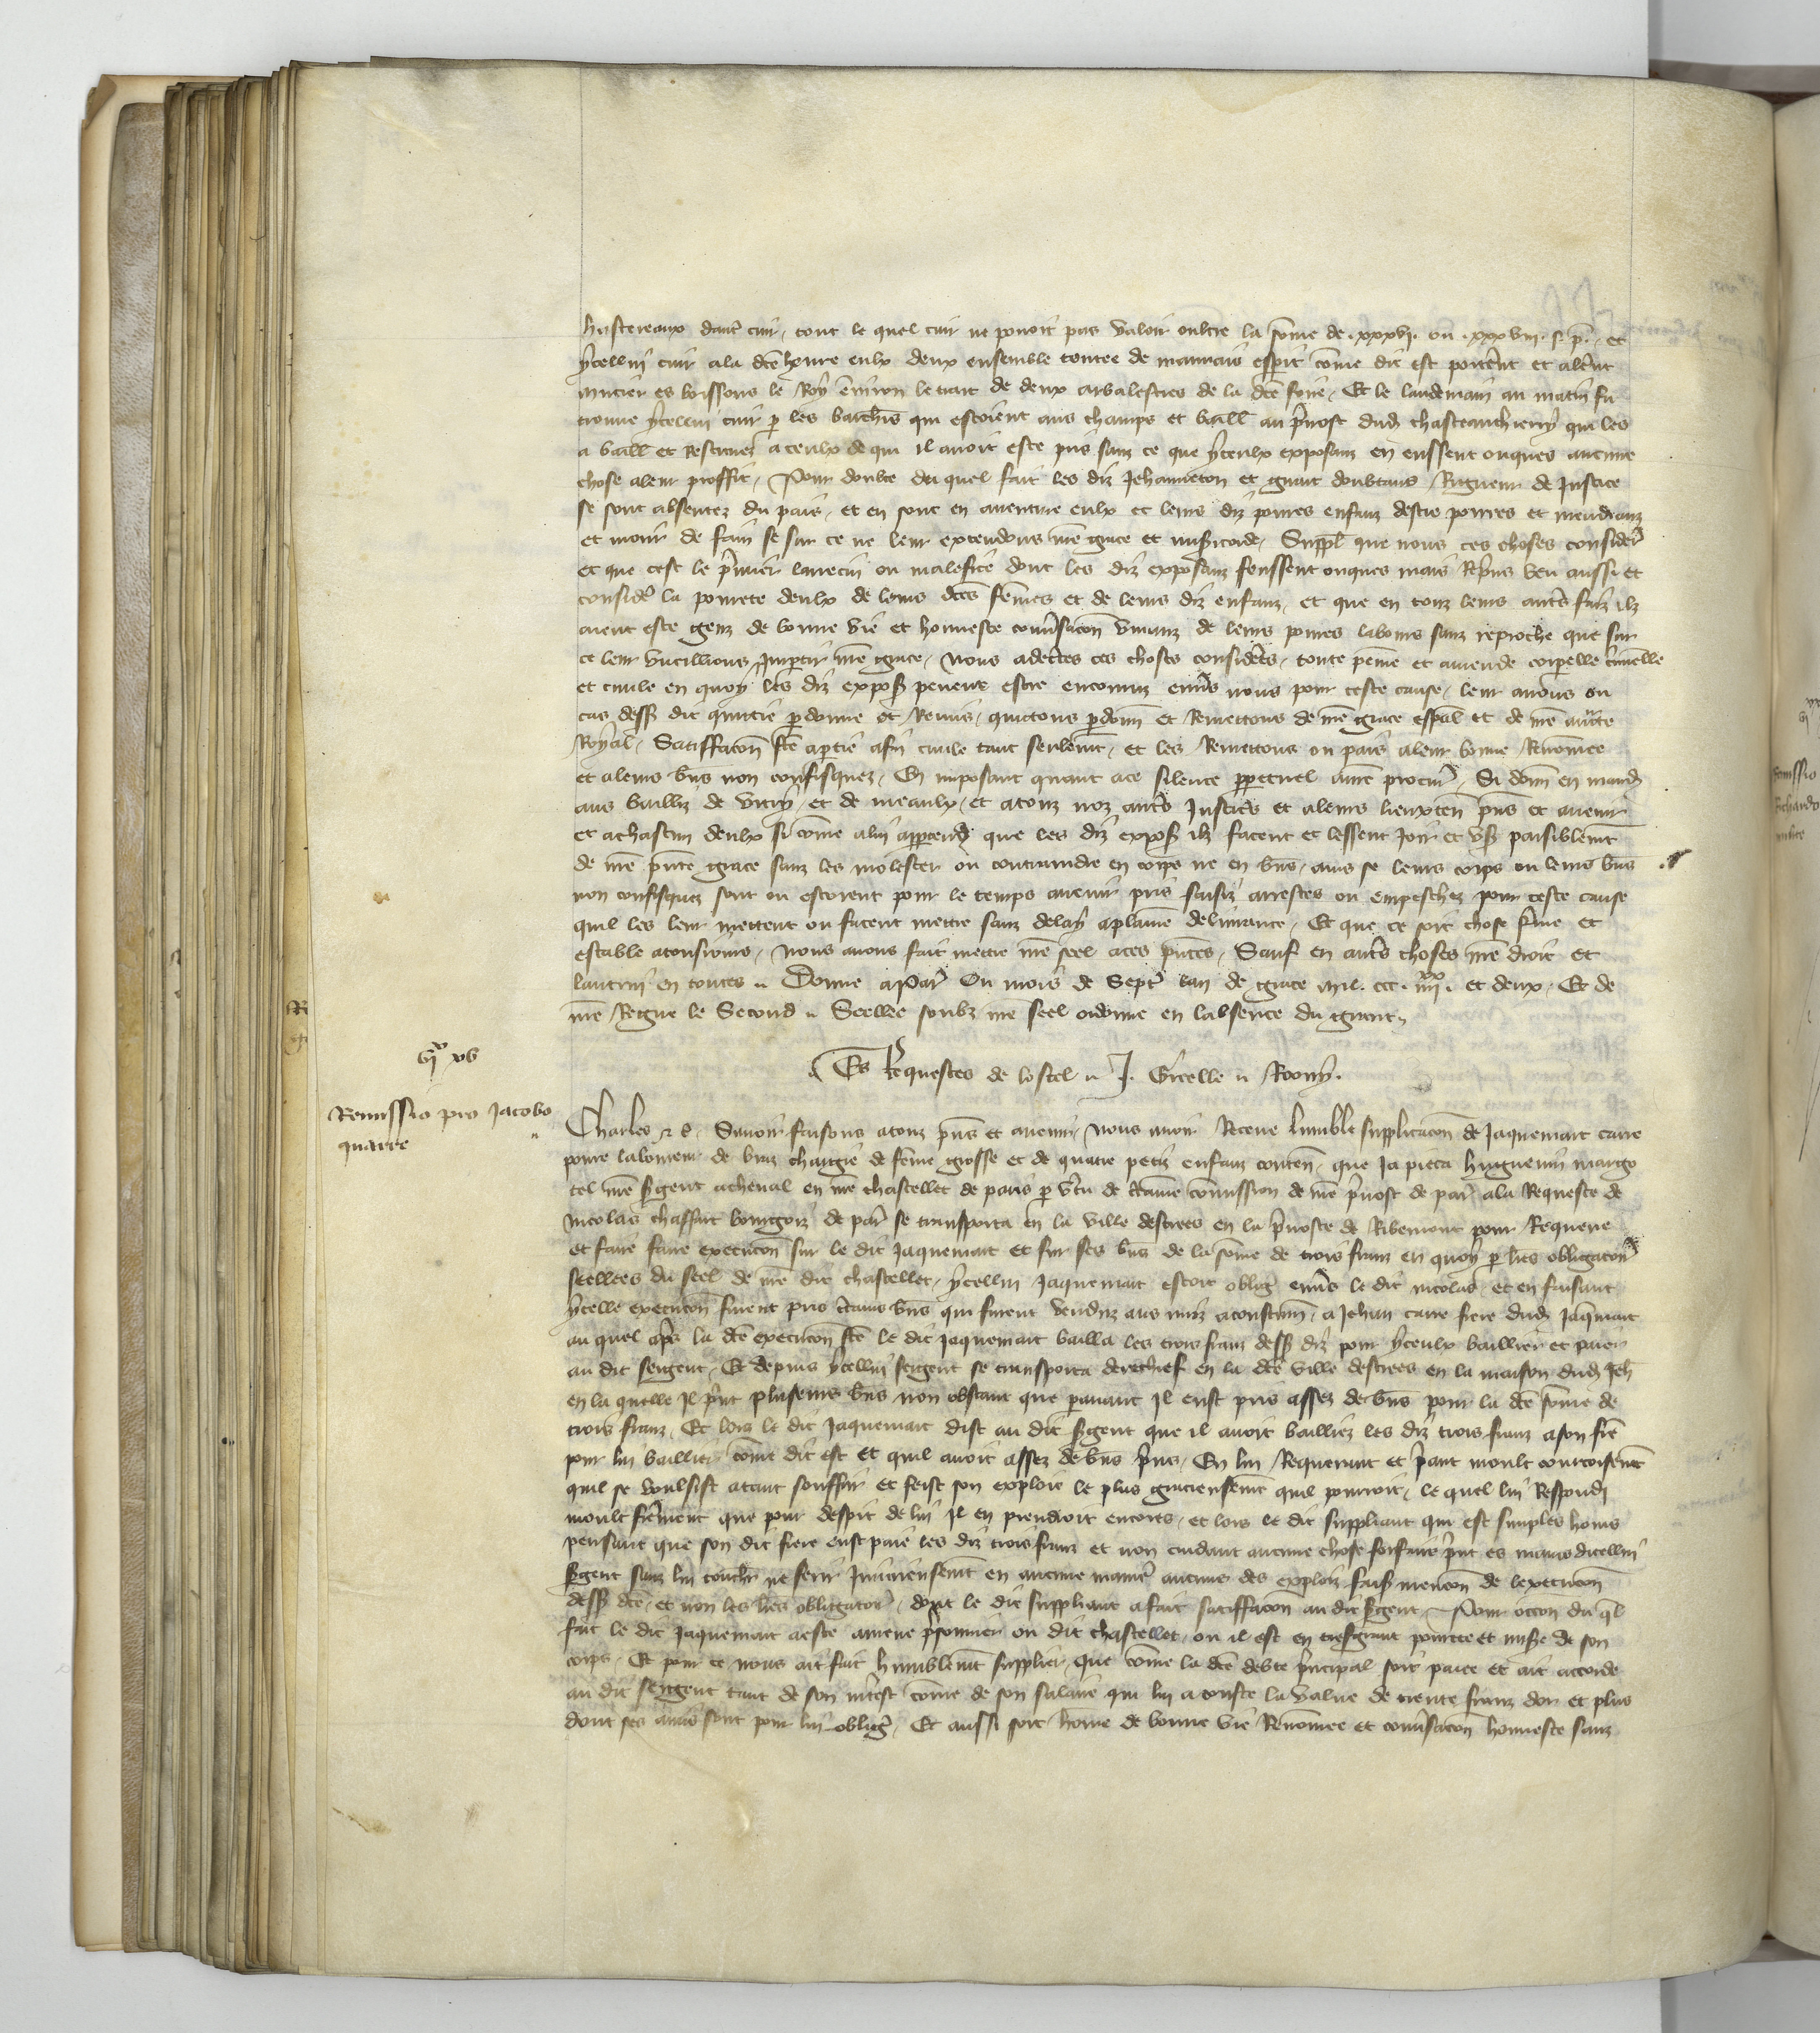 hustereaux dautre cuir, tout le quel cuir ne povoit pas valoir oultre la some de .xxxvj. ou .xxxviij. s. p. et
ycellui cuir a la dce heure eulx deux ensemble temptez de mauvais esperit come dit est porterent et alerent
mucier es boissons le Roy environ le trait de deux arbalestres de la dce foire, Et le landemain au matin fu
trouve ycellui cuir p les bachrs qui estoient aus champs et baill au prevost dud chasteauthierry qui les
a baill et Restituez a ceulx de qui il avoit este pris sanz ce que yceulx exposans en eussent onques aucune
chose a leur proffit, Pour doubte du quel fait les diz Jehanneton et grant doubtans Rigueur de Justice
se sont absentez du pais, et en sont en aventure eulx et leurs diz povres enfanz destre povres et mendians
et mourir de fain se sur ce ne leur extendons nre grace et misericorde, Suppl que nous ces choses consider
et que cest le premier larrecin ou malefice dont les diz exposans feussent onques mais Reprins veu aussi et
consider la povrete deulx de leurs dces femes et de leurs diz enfanz, et que en touz leurs autres faiz ilz
aient este genz de bonne vie et honneste conversacon vivanz de leurs povres labours sanz reproche que sur
ce leur vueillions Impartir nre grace, Nous adecertes ces choses considerees, toute peine et amende corpelle criminelle
et civile en quoy les diz expos pevent estre encouruz envers nous pour ceste cause, leur avons ou
cas dess dit quittie pardonne et Remis, quictons pardonn et Remettons de nre grace espal et de nre aucte
Royal, Satiffacon fce a ptie afin civile tant seulement, et les Remettons ou pais a leur bonne Renomee
et a leurs biens non confisquez, En imposant quant a ce silence ppetuel a nre procur, Si donn en mand
aus bailliz de vitry et de meaulx, et a touz noz autres Justiciers et a leurs lieuxten pns et avenir
et a chascun deulx si come a lui appartend que les diz expos ilz facent et lessent Joir et us paisiblement
de nre pnte grace sanz les molester ou contraindre en corps ne en biens, mais se leurs corps ou leurs biens
non confisquez sont ou estoient pour le temps avenir pris saisiz arrestes ou empeschez pour ceste cause
quil les leur mettent ou facent mettre sanz delay a plaine delivrance, Et que ce soit chose ferme et
estable a tousjours, Nous avons fait mettre nre seel a ces pntes, Sauf en autres choses nre droit et
lautrui en toutes. Donne a Par Ou mois de Septre lan de grace mil. ccc. iiijxx. et deux. Et de
nre Regne le Second. Seellee soubz nre seel ordonne en labsence du grant.
Es Requestes de lostel. J. Gicelle. Roony.
vjxx xv
Remissio pro Jacobo
quarre
Charles &c. Savoir faisons a touz pns et avenir, Nous avoir Receue lumble supplicacon de Jaquemart carre
povre laboureur de braz chargie de feme grosse et de quatre petiz enfanz conten, que Ja pieca huguenin margo
tel nre sergent a cheval en nre chastellet de paris p vertu de certaine comission de nre prevost de par a la Requeste de
Nicolas chaffart bourgois de par se transporta en la ville destrees en la prevoste de Ribemont pour Requerre
et faire faire execucon sur le dit Jaquemart et sur ses biens de la some de trois frans en quoy p lres obligatoires
seellees du seel de nre dit chastellet, ycellui Jaquemart estoit oblig envers le dit nicolas, et en faisant
ycelle execucon furent pris certains biens qui furent venduz aus nuiz acoustum, a Jehan carre frere dud Jaqmart
au quel apres la dce execucon fce le dit Jaquemart bailla les trois frans dess diz pour yceulx baillier et paier
au dit sergent, Et depuis ycellui sergent se transporta derechief en la dce ville destrees en la maison dud Jeh
en la quelle Il print pluseurs biens non obstant que paravant Il eust pris assez de biens pour la dce some de
trois frans, Et lors le dit Jaquemart dist au dit sergent que il avoit bailliez les diz trois frans a son frere
pour lui baillier come dit est et quil avoit assez de biens prins, En lui Requerant et priant moult courtoisement
quil se voulsist a tant souffrir et feist son exploit le plus gracieusement quil pourroit, le quel lui Respondi
moult fierement que pour despit de lui Il en prendroit encores, et lors le dit suppliant qui est simples homs
pensant que son dit frere eust paie les diz trois frans et non cuidant aucune chose forfaire print es mains dicellui
sergent sanz lui touchr ne ferir Injurieusement en aucune maniere aucuns des exploiz fais mencon de lexecucon
dess dce, et non les lres obligatoires, dont le dit suppliant a fait satiffacon au dit sergent. Pour occon du ql
fait le dit Jaquemart a este amene prisonnier ou dit chastellet, ou il est en tresgrant povrete et misere de son
corps, Et pour ce nous ait fait humblement supplier, que come la dce debte principal soit paiee et ait accorde
au dit sergent tant de son interest come de son salaire qui lui a couste la value de trente frans dor et plus
dont ses amis sont pour lui obligez, Et aussi soit home de bonne vie Renomee et conversacon honneste sanz